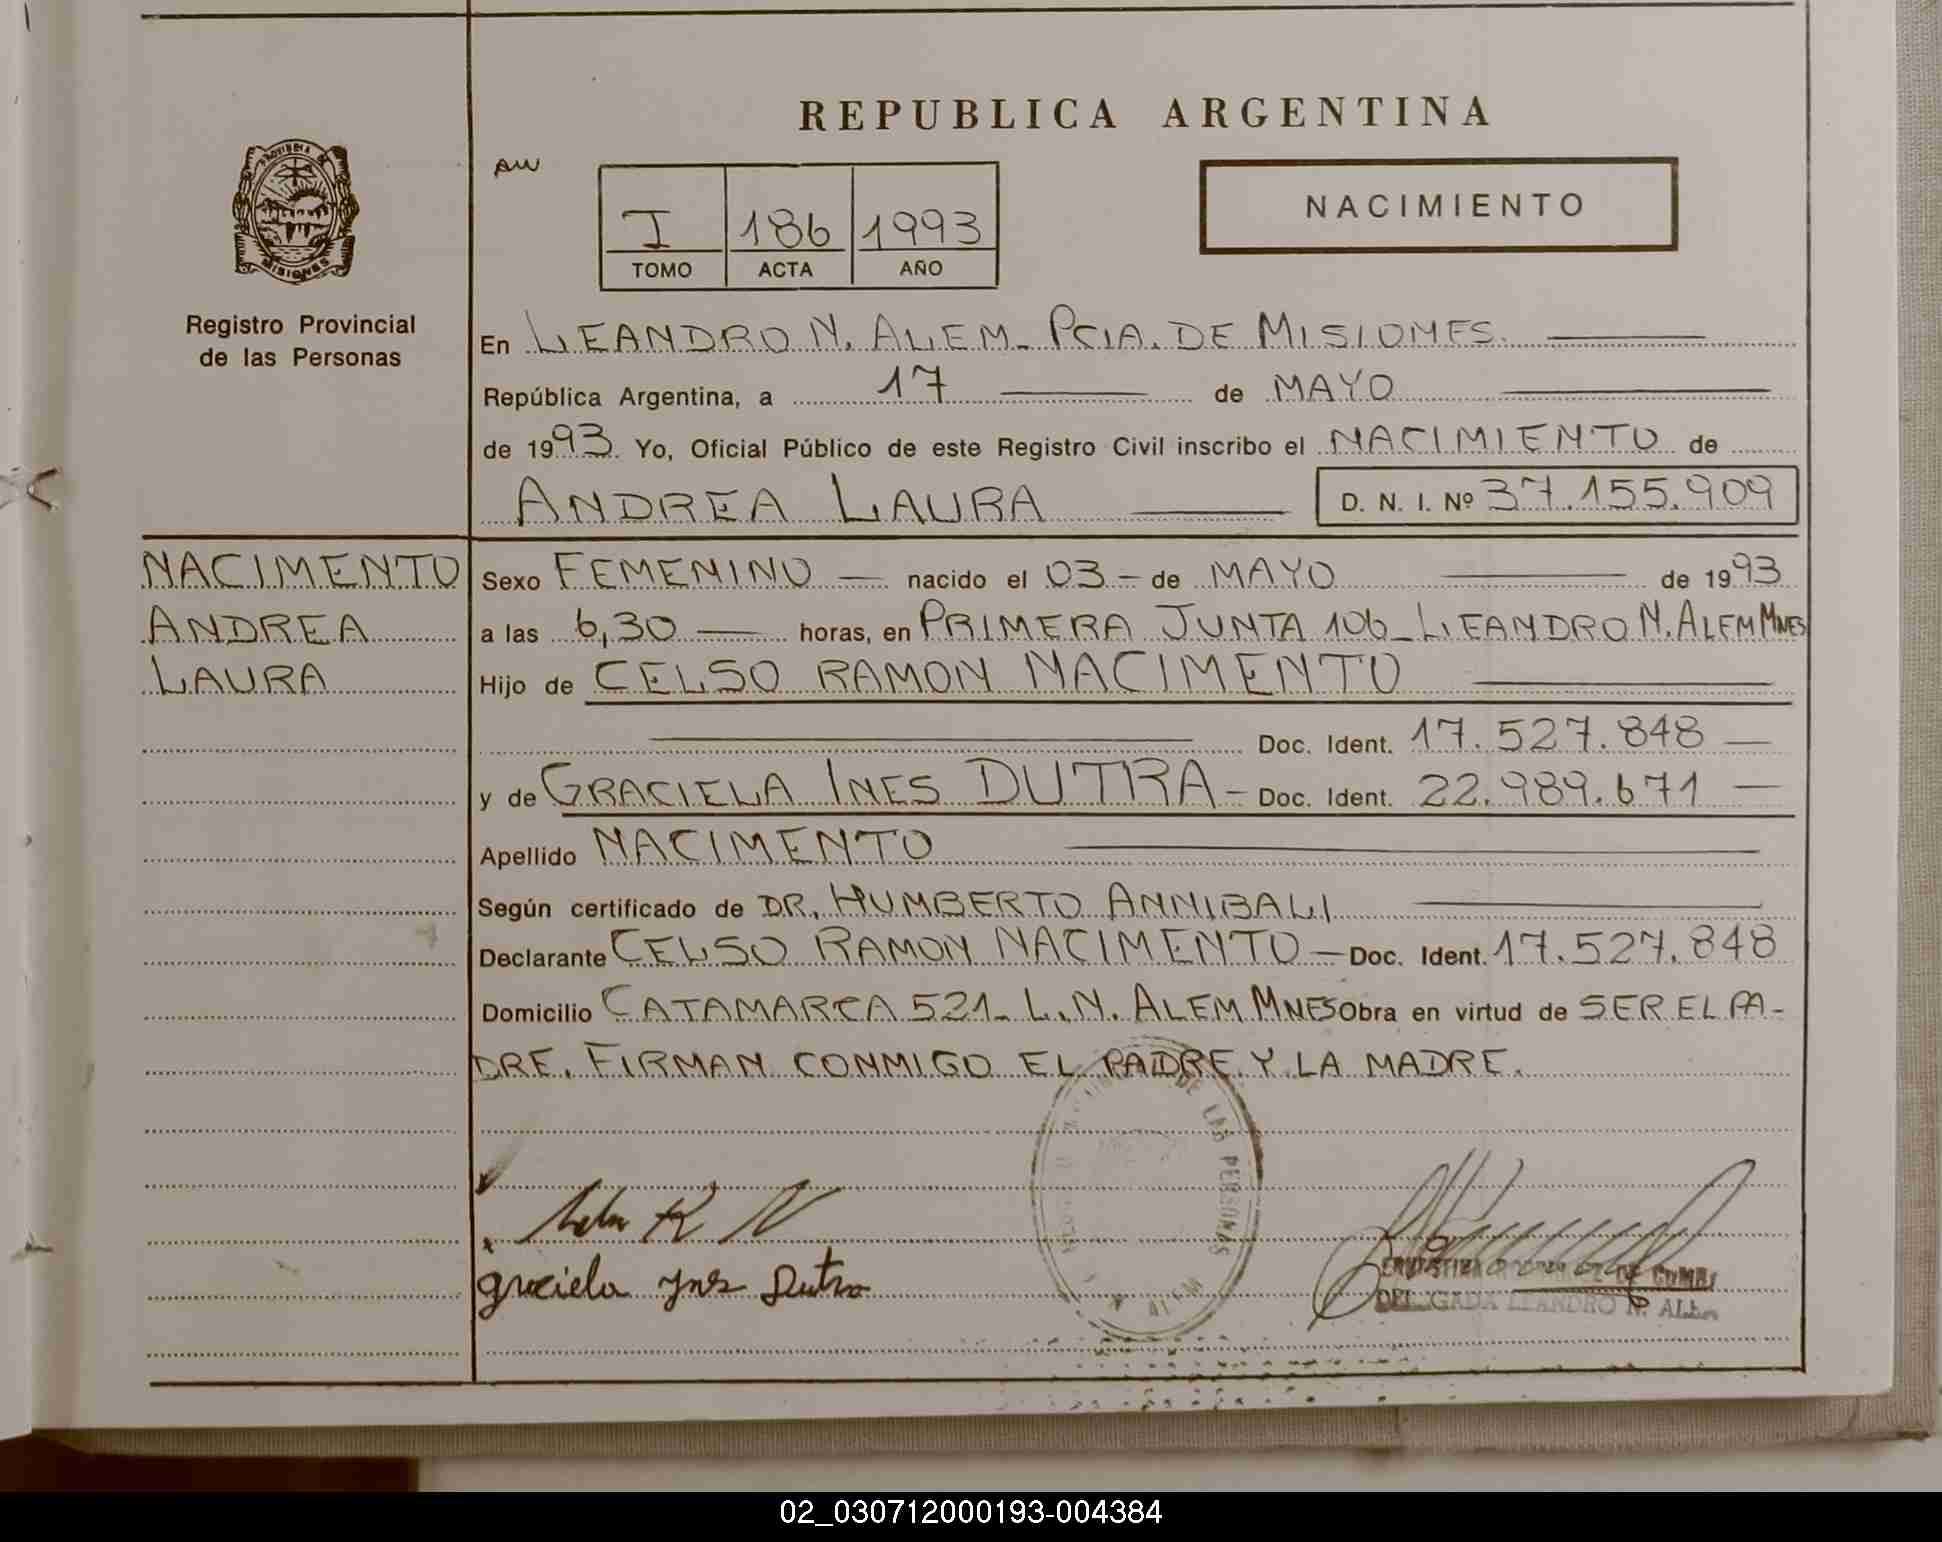 REPUBLICA ARGENTINA
AW
I 186 1993
TOMO ACTA AÑO
NACIMIENTO
PROVINCIA DE
MISIONES
Registro Provincial
de las Personas
En LEANDRO N. ALEM_ PCIA. DE MISIONES.
República Argentina, a 17 de MAYO
de 1993. Yo, Oficial Público de este Registro Civil inscribo el NACIMIENTO de
ANDREA LAURA D. N. I. Nº 37.155.909
NACIMENTO
ANDREA
LAURA
Sexo FEMENINO — nacido el 03 - de MAYO de 1993
a las 6,30 — horas, en PRIMERA JUNTA 106_LEANDRO N. ALEM MNES
Hijo de CELSO RAMON NACIMENTO
Doc. Ident. 17.527.848 —
y de GRACIELA INES DUTRA - Doc. Ident. 22.989.671 —
Apellido NACIMENTO
Según certificado de DR. HUMBERTO ANNIBALI
Declarante CELSO RAMON NACIMENTO — Doc. Ident. 17.527.848
Domicilio CATAMARCA 521_ L.N. ALEM MNES Obra en virtud de SER EL PA-
DRE. FIRMAN CONMIGO EL PADRE Y LA MADRE.
DE LAS PERSONAS
N. ALEM
R N
Graciela Ynes Dutra
DELEGADA LEANDRO N. ALEM
02_030712000193-004384